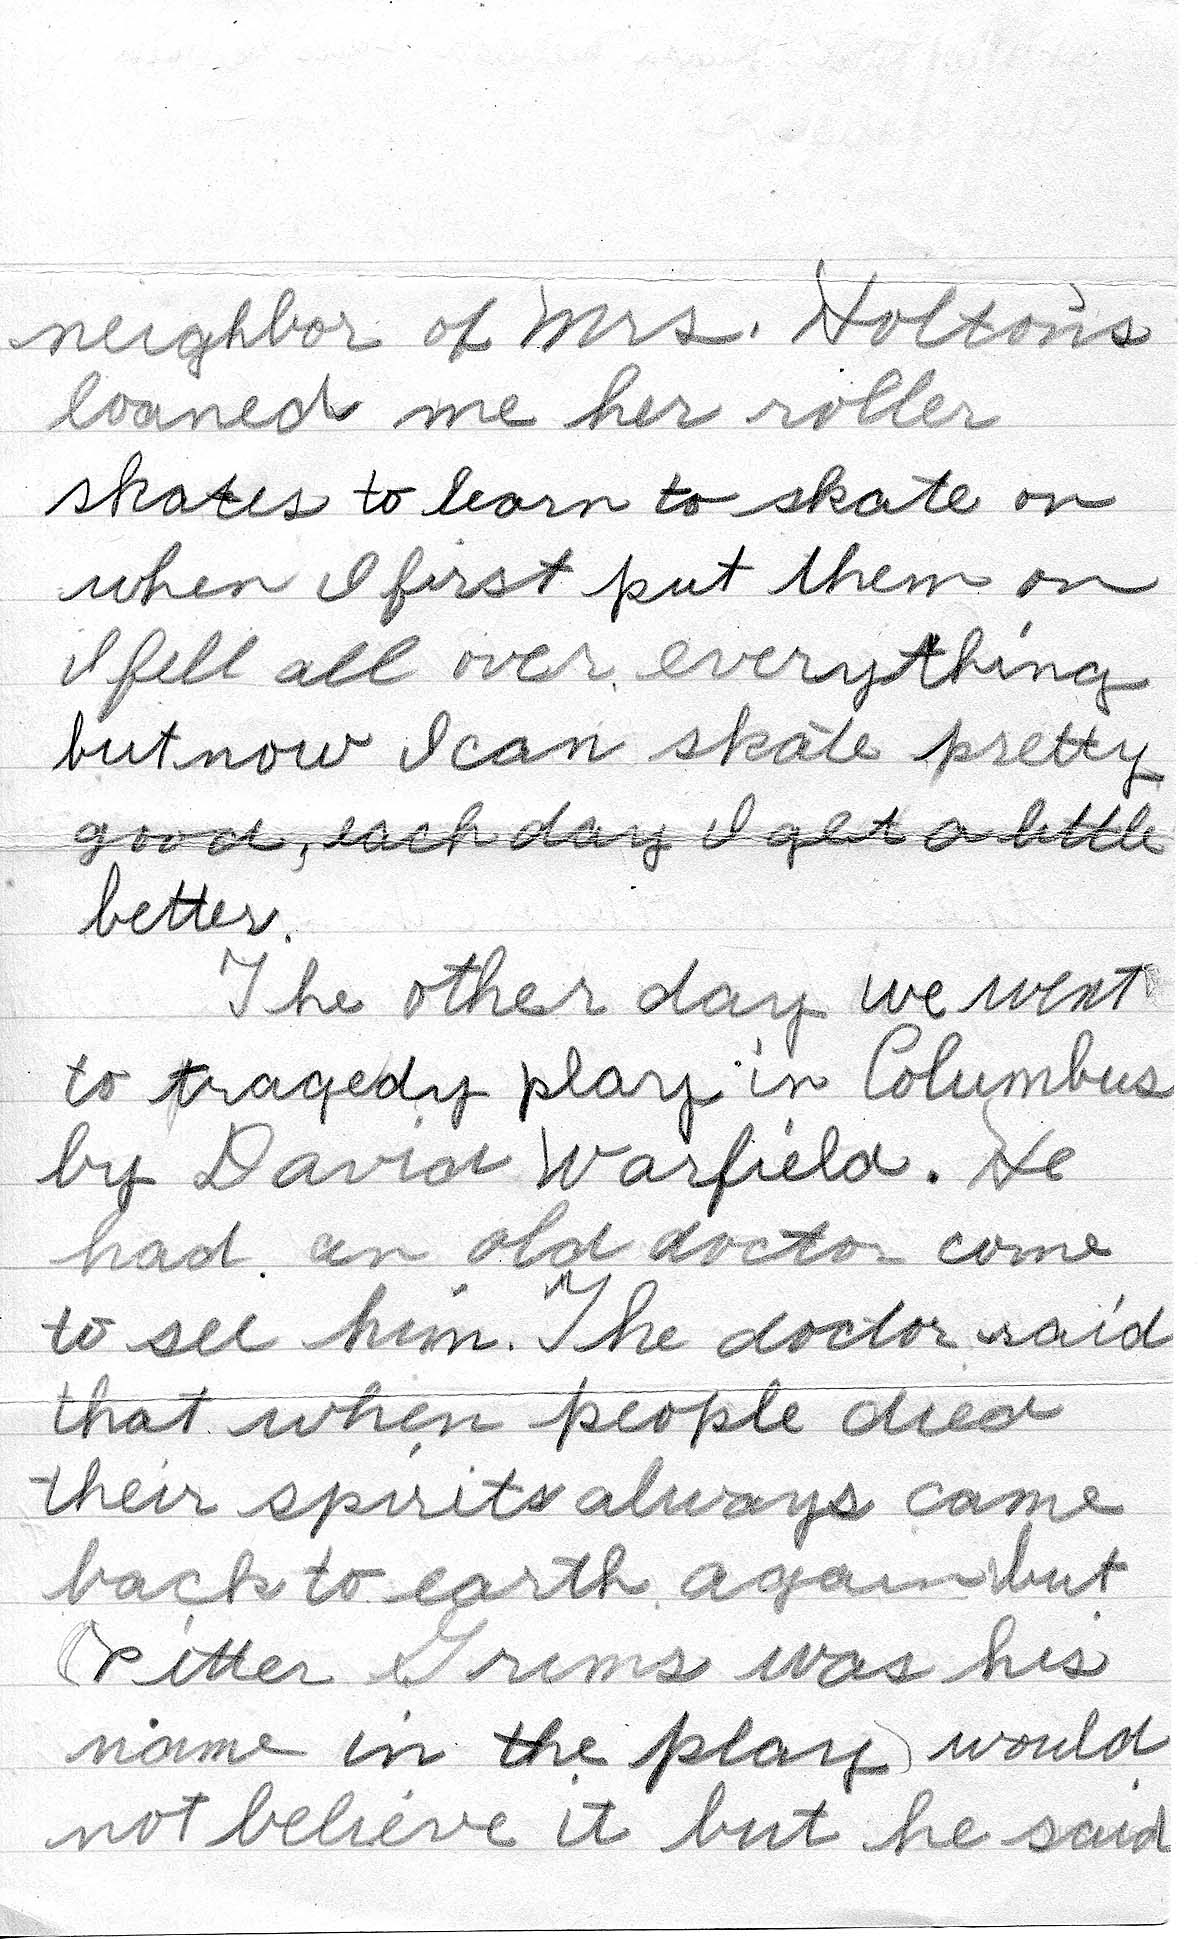 neighbor of Mrs. Holton's
loaned me her roller
skates to learn to skate on
when I first put them on
I fell all over everything
but now I can skate pretty
good, each day I get a little
better.
The other day we went
to tragedy play in Columbus
by David Warfield. He
had an old doctor come
to see him. The doctor said
that when people died
their spirits always came
back to earth again but
(Pitter Grims was his
name in the play) would
not believe it but he said